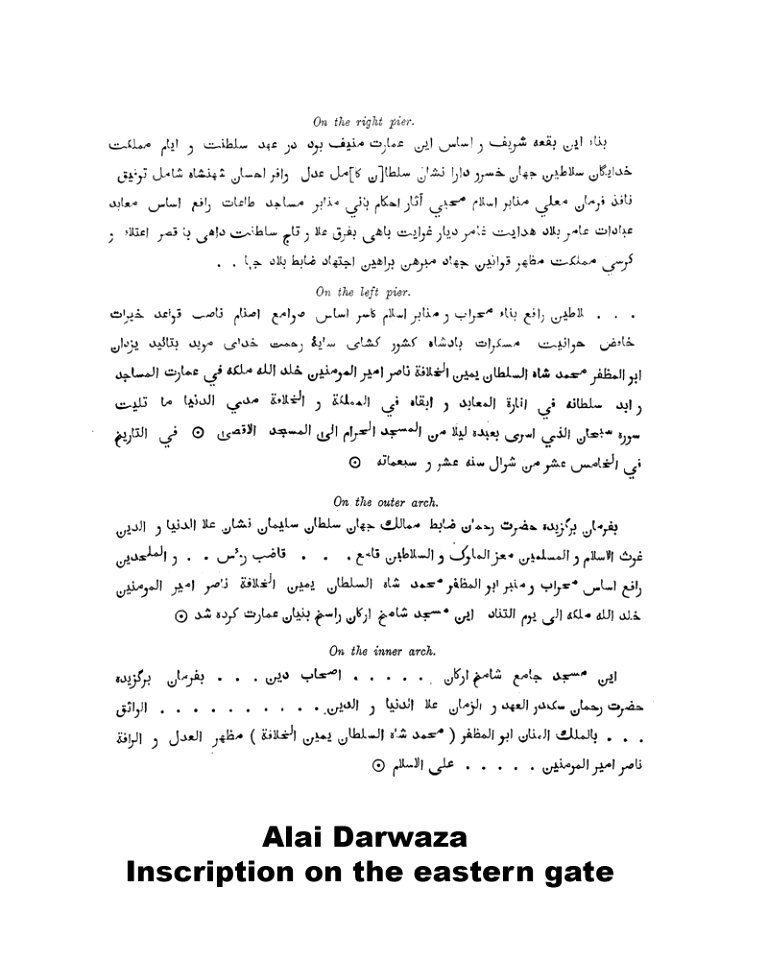 On the right pier.
بناء این بقعه شریف و اساس این عمارت منیف بود در عهد سلطنت و ایام مملکت
خدایگان سلاطین جهان خسرو دارا نشان سلطا[ن کا]مل عدل وافر احسان شهنشاه شامل توفیق
نافذ فرمان معلي منابر اسلام محیي آثار احکام باني منابر مساجد طاعات رافع اساس معابد
عبادات عامر بلاد هدایت غامر دیار غوایت باهی بفرق علا و تاج سلطنت داهی با قصر اعتلاء و
کرسي مملکت مظهر قوانین جهاد مبرهن براهین اجتهاد ضابط بلاد جها . .
On the left pier.
. . . لاطین رافع بناء محراب و منابر اسلام کاسر اساس صوامع اصنام ناصب قواعد خیرات
خافض حوانیت مسکرات بادشاه کشور کشای سایۀ رحمت خدای موید بتائید یزدان
ابو المظفر محمد شاه السلطان یمین الخلافة ناصر امیر المومنین خلد الله ملکه في عمارت المساجد
و ابد سلطانه في انارة المعابد و ابقاه في المملکة و الخلافة مدي الدنیا ما تلیت
سوره سبحان الذي اسری بعبده لیلا من المسجد الحرام الی المسجد الاقصی ⊙ في التاریخ
في الخامس عشر من شوال سنه عشر و سبعماته ⊙
On the outer arch.
بفرمان برگزیده حضرت رحمان ضابط ممالک جهان سلطان سلیمان نشان علا الدنیا و الدین
غوث الاسلام و المسلمین معز الملوک و السلاطین قامع . . . قاضب . . . و الملحدین
رافع اساس محراب و منبر ابو المظفر محمد شاه السلطان یمین الخلافة ناصر امیر المومنین
خلد الله ملکه الی یوم التناد این مسجد شامخ ارکان راسخ بنیان عمارت کرده شد ⊙
On the inner arch.
این مسجد جامع شامخ ارکان . . . . . اصحاب دین . . . بفرمان برگزیده
حضرت رحمان سکندر العهد و الزمان علا الدنیا و الدین . . . . . . . . . . الواثق
. . . بالملک المنان ابو المظفر ( محمد شاه السلطان یمین الخلافة ) مظهر العدل و الرافة
ناصر امیر المومنین . . . . . علی الاسلام ⊙
Alai Darwaza
Inscription on the eastern gate